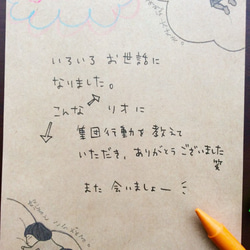 いろいろ お世話に
なりました。
こんな リオに
集団行動を教えて
いただき、ありがとうございました
笑
また 会いましょー